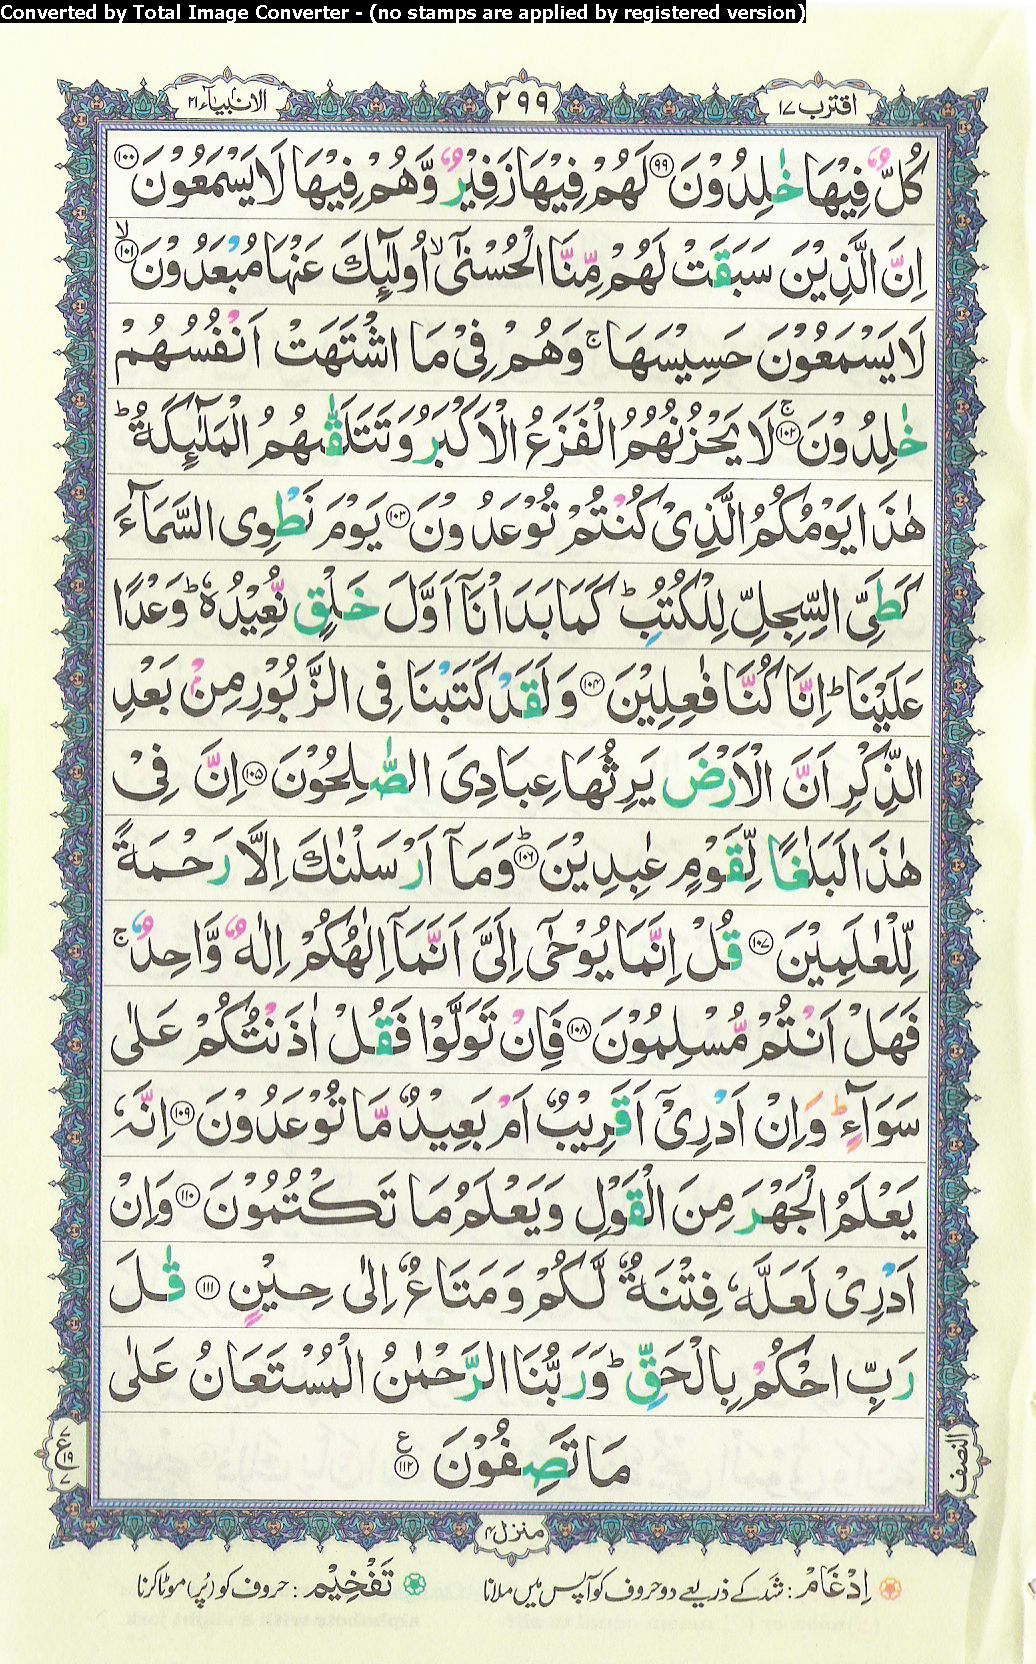 Converted by Total Image Converter - (no stamps are applied by registered version)
اقترب ١٧ ٢٩٩ الانبیآء ٢١
كُلٌّ فِیْهَا خٰلِدُوْنَ ۹۹ لَهُمْ فِیْهَا زَفِیْرٌ وَّهُمْ فِیْهَا لَا یَسْمَعُوْنَ ۱۰۰
اِنَّ الَّذِیْنَ سَبَقَتْ لَهُمْ مِّنَّا الْحُسْنٰۤی ۙ اُولٰٓىِٕكَ عَنْهَا مُبْعَدُوْنَ ۱۰۱ ۙ
لَا یَسْمَعُوْنَ حَسِیْسَهَا ۚ وَهُمْ فِیْ مَا اشْتَهَتْ اَنْفُسُهُمْ
خٰلِدُوْنَ ۱۰۲ ۚ لَا یَحْزُنُهُمُ الْفَزَعُ الْاَكْبَرُ وَتَتَلَقّٰىهُمُ الْمَلٰٓىِٕكَةُ ؕ
هٰذَا یَوْمُكُمُ الَّذِیْ كُنْتُمْ تُوْعَدُوْنَ ۱۰۳ یَوْمَ نَطْوِی السَّمَآءَ
كَطَیِّ السِّجِلِّ لِلْكُتُبِ ؕ كَمَا بَدَاْنَاۤ اَوَّلَ خَلْقٍ نُّعِیْدُهٗ ؕ وَعْدًا
عَلَیْنَا ؕ اِنَّا كُنَّا فٰعِلِیْنَ ۱۰۴ وَلَقَدْ كَتَبْنَا فِی الزَّبُوْرِ مِنْۢ بَعْدِ
الذِّكْرِ اَنَّ الْاَرْضَ یَرِثُهَا عِبَادِیَ الصّٰلِحُوْنَ ۱۰۵ اِنَّ فِیْ
هٰذَا لَبَلٰغًا لِّقَوْمٍ عٰبِدِیْنَ ۱۰۶ ؕ وَمَاۤ اَرْسَلْنٰكَ اِلَّا رَحْمَةً
لِّلْعٰلَمِیْنَ ۱۰۷ قُلْ اِنَّمَا یُوْحٰۤی اِلَیَّ اَنَّمَاۤ اِلٰهُكُمْ اِلٰهٌ وَّاحِدٌ ۚ
فَهَلْ اَنْتُمْ مُّسْلِمُوْنَ ۱۰۸ فَاِنْ تَوَلَّوْا فَقُلْ اٰذَنْتُكُمْ عَلٰی
سَوَآءٍ ؕ وَاِنْ اَدْرِیْۤ اَقَرِیْبٌ اَمْ بَعِیْدٌ مَّا تُوْعَدُوْنَ ۱۰۹ اِنَّهٗ
یَعْلَمُ الْجَهْرَ مِنَ الْقَوْلِ وَیَعْلَمُ مَا تَكْتُمُوْنَ ۱۱۰ وَاِنْ
اَدْرِیْ لَعَلَّهٗ فِتْنَةٌ لَّكُمْ وَمَتَاعٌ اِلٰی حِیْنٍ ۱۱۱ قٰلَ
رَبِّ احْكُمْ بِالْحَقِّ ؕ وَرَبُّنَا الرَّحْمٰنُ الْمُسْتَعَانُ عَلٰی
مَا تَصِفُوْنَ ۱۱۲ ع
النصف
ع ٧ ١٩ ٧
منزل ٤
اِدْغَامْ : شَد کے ذریعے دو حروف کو آپس میں ملانا تَفْخِیْم : حروف کو (پُر) موٹا کرنا